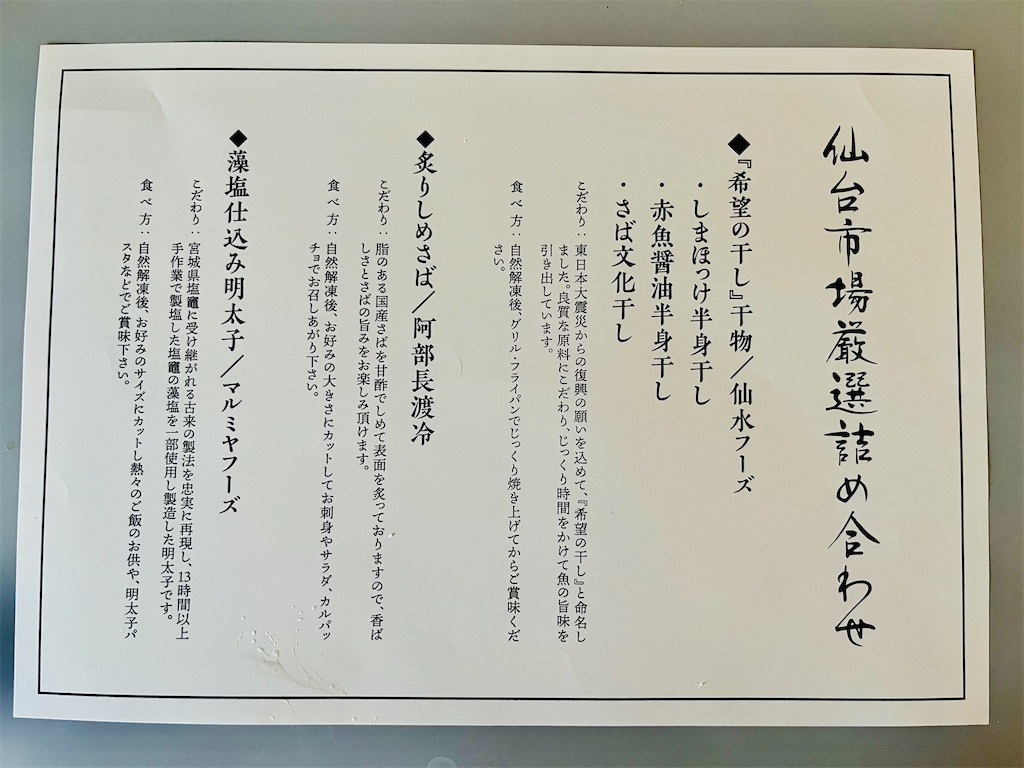 仙台市場厳選詰め合わせ
◆『希望の干し』干物／仙水フーズ
・しまほっけ半身干し
・赤魚醤油半身干し
・さば文化干し
こだわり：東日本大震災からの復興の願いを込めて、『希望の干し』と命名し
ました。良質な原料にこだわり、じっくり時間をかけて魚の旨味を
引き出しています。
食べ方：自然解凍後、グリル・フライパンでじっくり焼き上げてからご賞味くだ
さい。
◆炙りしめさば／阿部長渡冷
こだわり：脂のある国産さばを甘酢でしめて表面を炙っておりますので、香ば
しさとさばの旨みをお楽しみ頂けます。
食べ方：自然解凍後、お好みの大きさにカットしてお刺身やサラダ、カルパッ
チョでお召しあがり下さい。
◆藻塩仕込み明太子／マルミヤフーズ
こだわり：宮城県塩竈に受け継がれる古来の製法を忠実に再現し、13時間以上
手作業で製塩した塩竈の藻塩を一部使用し製造した明太子です。
食べ方：自然解凍後、お好みのサイズにカットし熱々のご飯のお供や、明太子パ
スタなどでご賞味下さい。